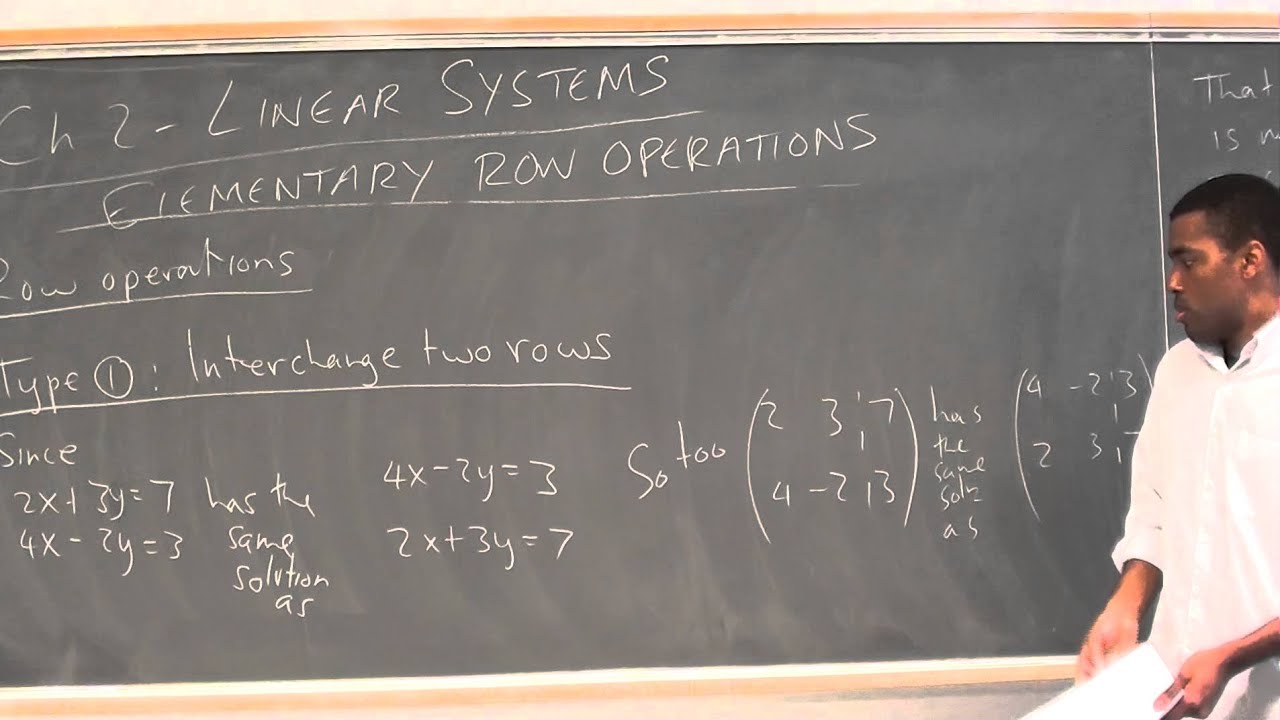 Ch 2 - LINEAR SYSTEMS
ELEMENTARY ROW OPERATIONS
Row operations
Type ①: Interchange two rows
Since
2x+3y=7 has the
4x-2y=3 same
solution
as
4x-2y=3
2x+3y=7
So too
2 3 | 7
4 -2 | 3
has
the
same
soln
as
4 -2 | 3
2 3 |
That
is